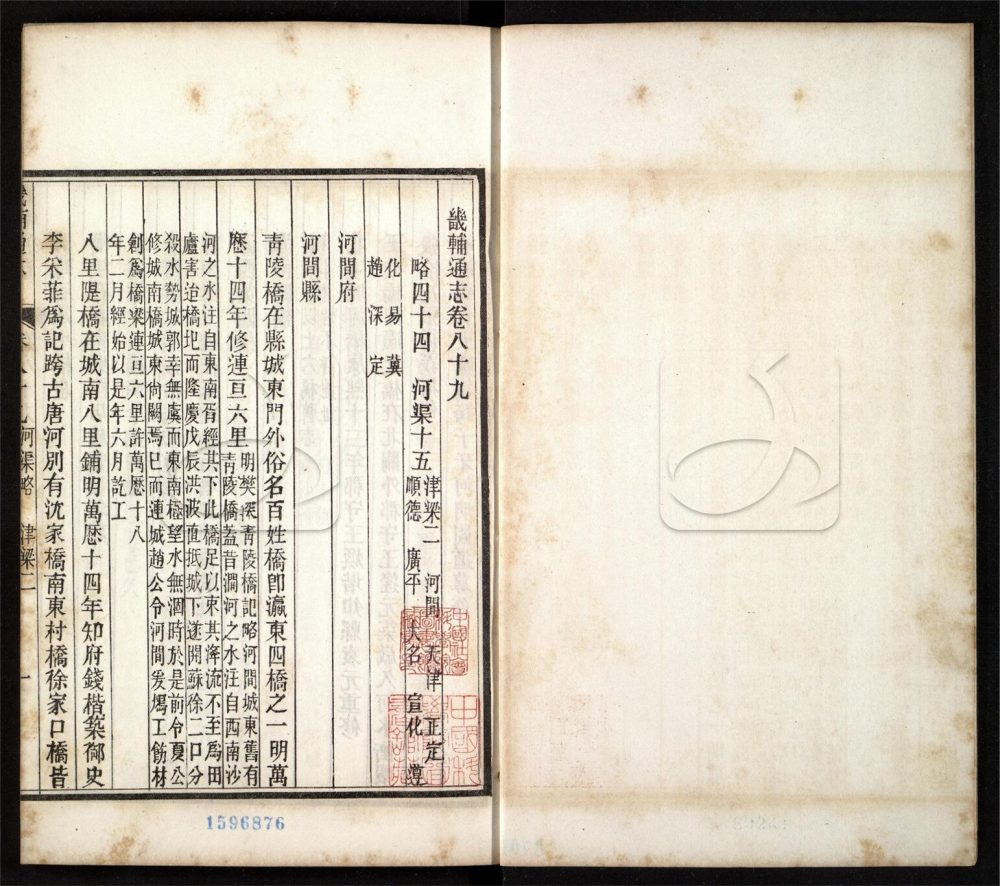 畿輔通志卷八十九
略四十四 河渠十五 津梁二 河間 天津 正定
順德 廣平 大名 宣化 遵
化 易 冀
趙 深 定
河間府
河間縣
青陵橋在縣城東門外俗名百姓橋卽瀛東四橋之一明萬
歷十四年修連亘六里明樊深青陵橋記略河間城東舊有
青陵橋蓋昔澗河之水注自西南沙
河之水注自東南胥經其下此橋足以束其滓流不至爲田
廬害迨橋圯而隆慶戊辰洪波直抵城下遂開蘇徐二口分
殺水勢城郭幸無虞而東南極望水無涸時於是前令夏公
修城南橋城東尙闕焉已而連城趙公令河間爰鳩工飭材
創爲橋梁連亘六里許萬歷十八
年二月經始以是年六月訖工
八里隄橋在城南八里鋪明萬歷十四年知府錢楷築御史
李采菲爲記跨古唐河別有沈家橋南東村橋徐家口橋昔
河渠略 津梁二 一
1596876